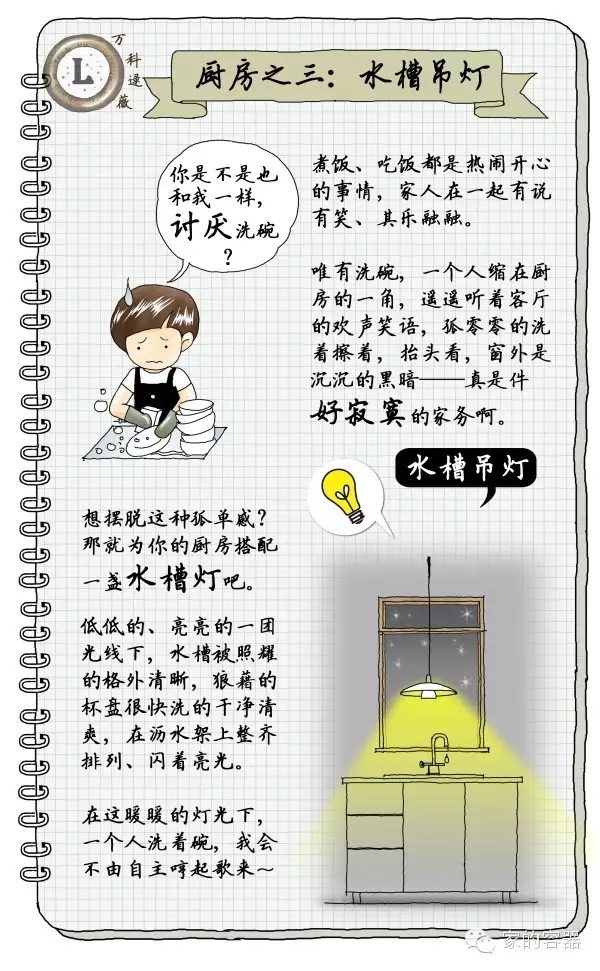 L
万科逯薇
厨房之三：水槽吊灯
你是不是也
和我一样，
讨厌洗碗
？
煮饭、吃饭都是热闹开心
的事情，家人在一起有说
有笑、其乐融融。
唯有洗碗，一个人缩在厨
房的一角，遥遥听着客厅
的欢声笑语，孤零零的洗
着擦着，抬头看，窗外是
沉沉的黑暗——真是件
好寂寞的家务啊。
水槽吊灯
想摆脱这种孤单感？
那就为你的厨房搭配
一盏水槽灯吧。
低低的、亮亮的一团
光线下，水槽被照耀
的格外清晰，狼藉的
杯盘很快洗的干净清
爽，在沥水架上整齐
排列、闪着亮光。
在这暖暖的灯光下，
一个人洗着碗，我会
不由自主哼起歌来～
家的容器